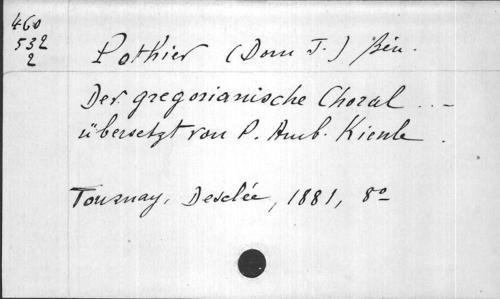 460
532
2
Pothier (Dom J.) Bén.
Der gregorianische Choral ...-
übersetzt von P. Amb. Kienle.
Tournay, Desclée, 1881, 8º